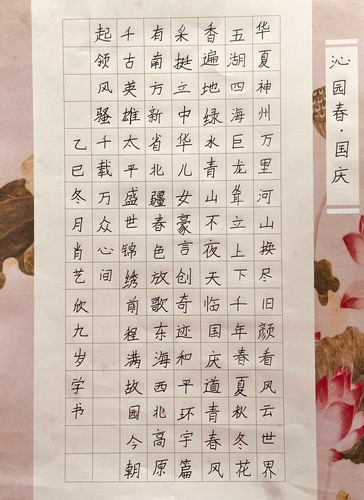 沁园春·国庆
华夏神州万里河山换尽旧颜看风云世界
五湖四海巨龙耸立上下千年春夏秋冬花
香遍地绿水青山不夜天临国庆道青春风
采挺立中华儿女豪言创奇迹和平环宇篇
有南方新省北疆春色放歌东海西北高原
千古英雄太平盛世锦绣前程满故园今朝
起领风骚千载万众心间
乙巳冬月肖艺欣九岁学书